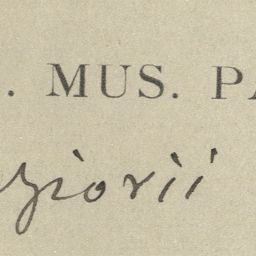 . MUS. PA
giorii